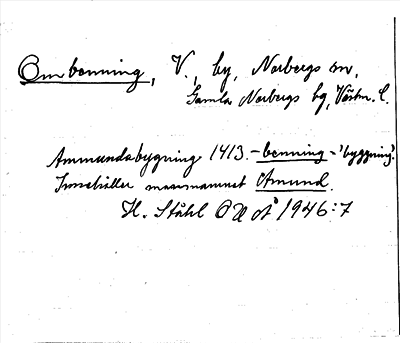 Ombenning, V., by, Norbergs sn,
Gamla Norbergs bg, Västm. l.
Ammundabygning 1413. - benning - 'byggning'.
Innehåller mansnamnet Amund.
H. Ståhl OUÅ 1946:7